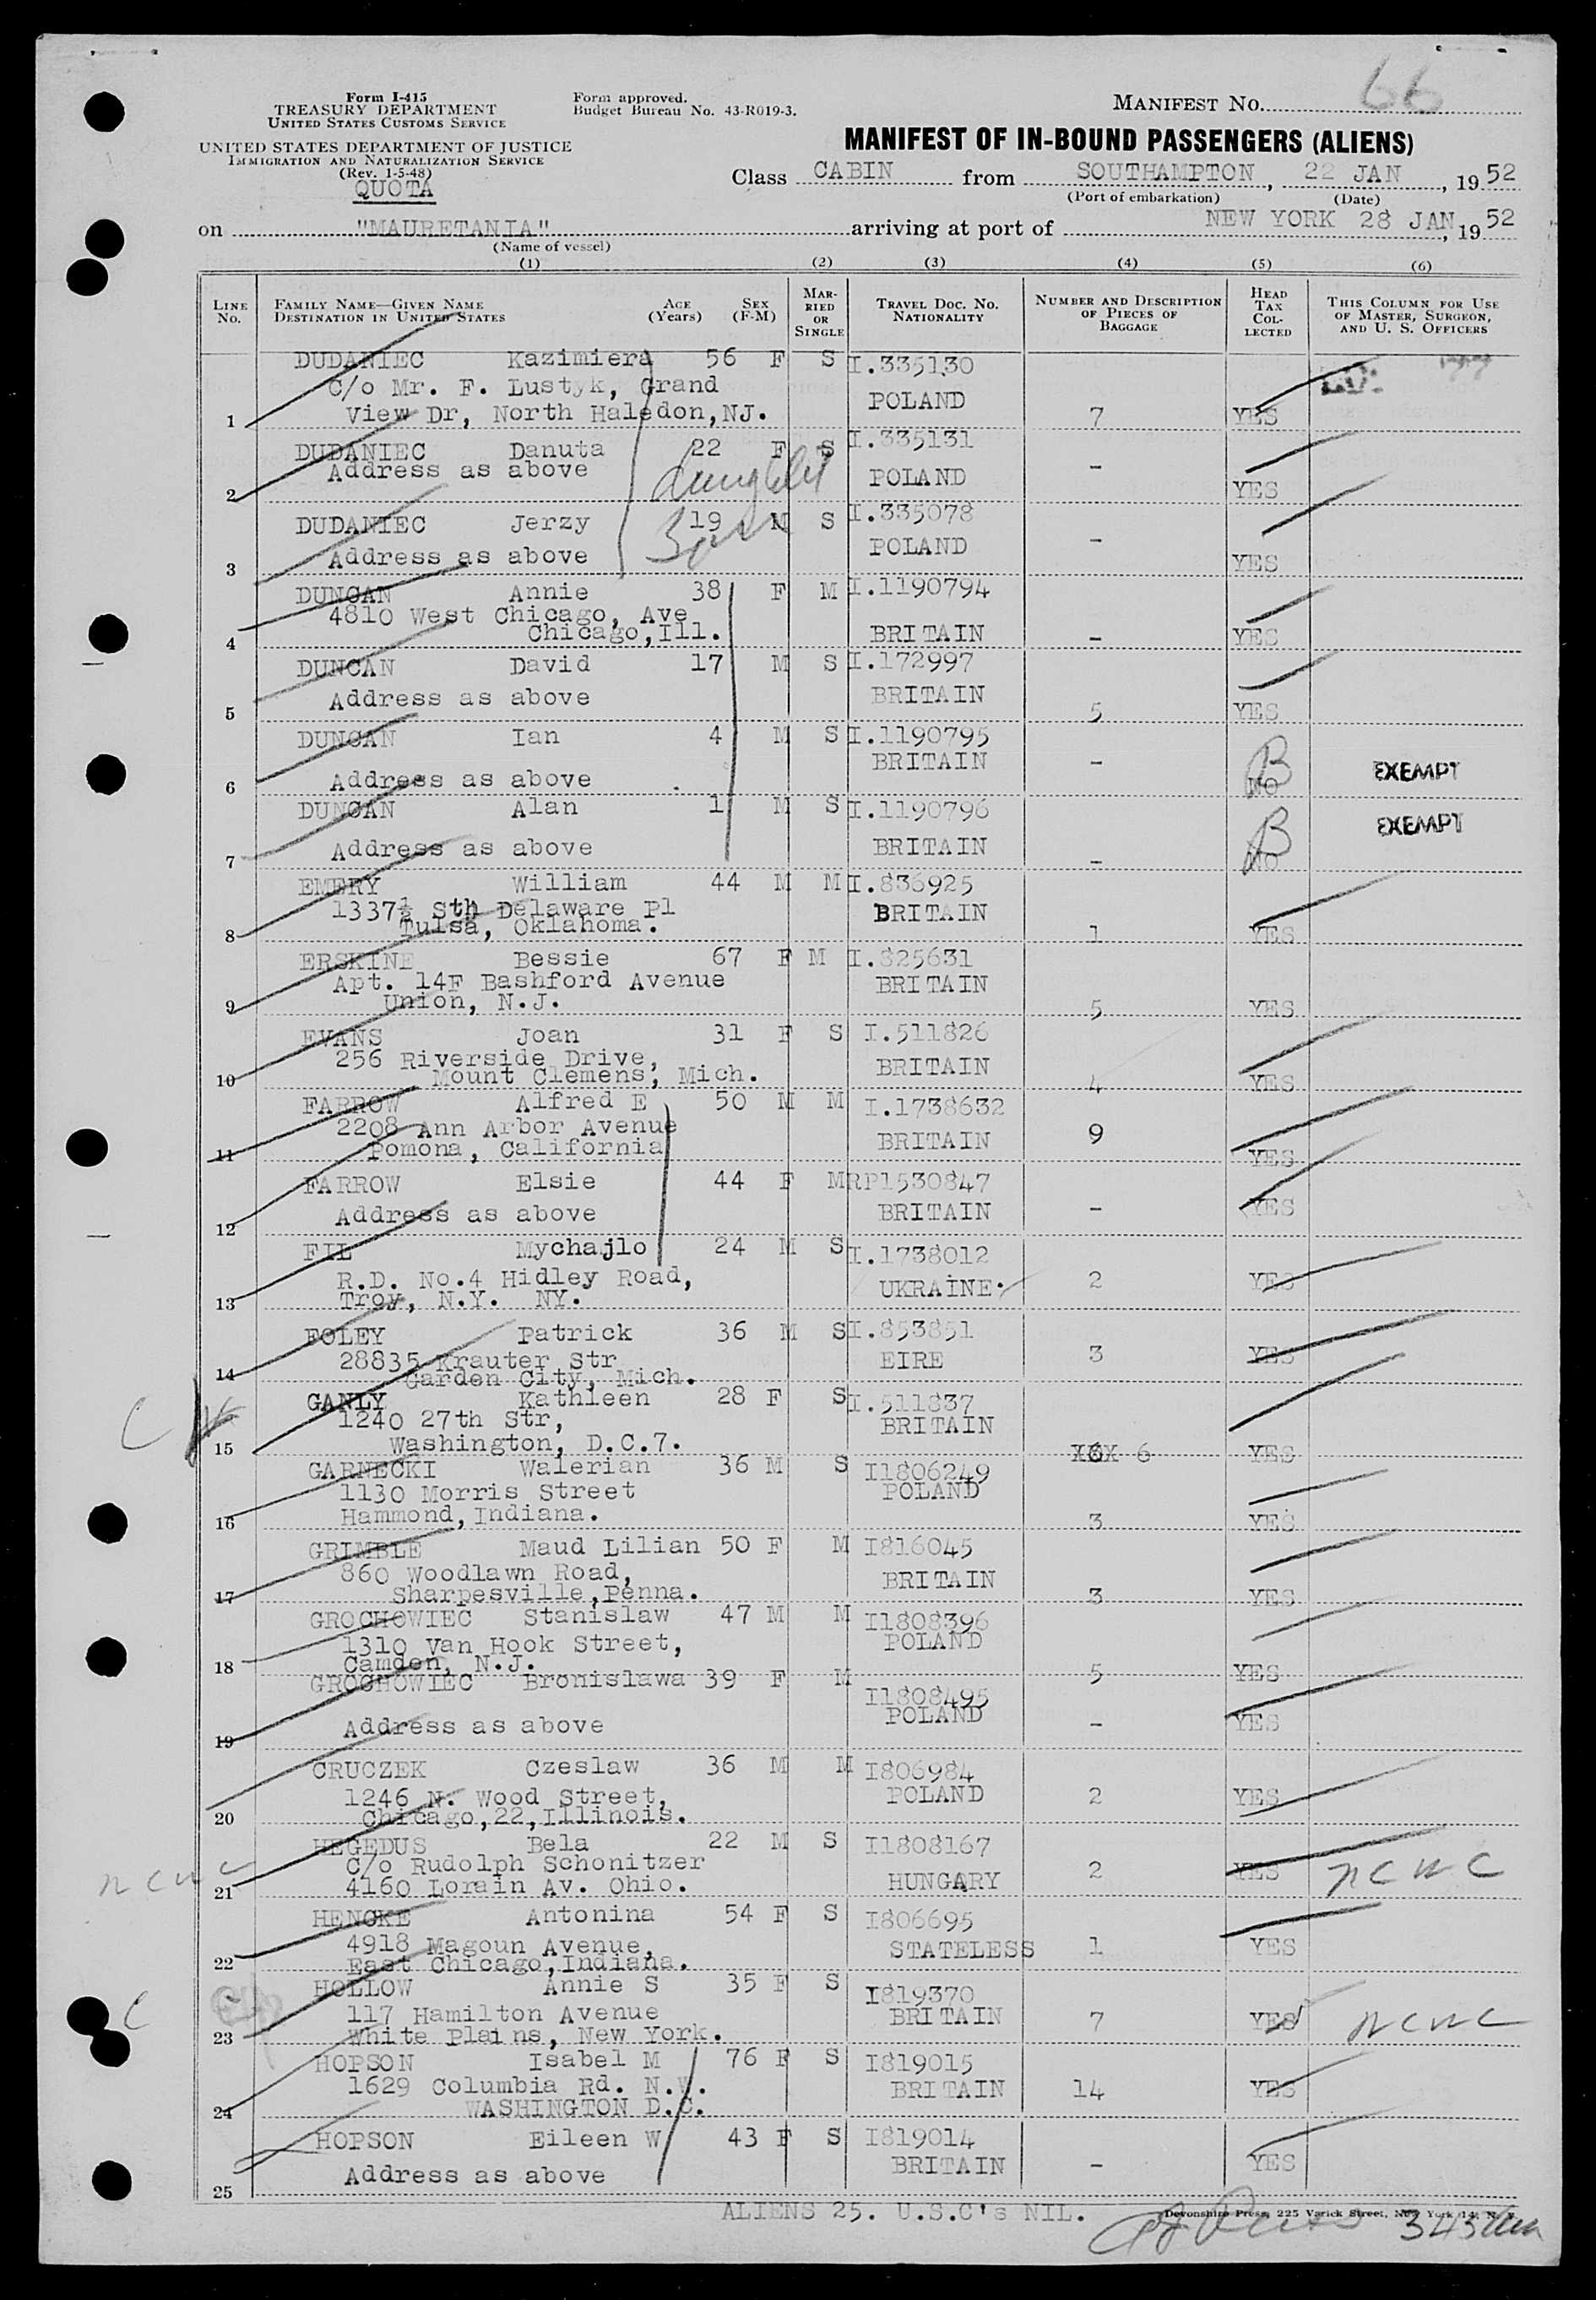 66
Form I-415
TREASURY DEPARTMENT
UNITED STATES CUSTOMS SERVICE
UNITED STATES DEPARTMENT OF JUSTICE
IMMIGRATION AND NATURALIZATION SERVICE
(Rev. 1-5-48)
QUOTA
Form approved.
Budget Bureau No. 43-R019-3.
MANIFEST NO.
MANIFEST OF IN-BOUND PASSENGERS (ALIENS)
Class CABIN from SOUTHAMPTON, 22 JAN, 1952
(Port of embarkation) (Date)
on "MAURETANIA" arriving at port of NEW YORK 28 JAN, 1952
(Name of vessel)
(1) (2) (3) (4) (5) (6)
LINE No. FAMILY NAME—GIVEN NAME DESTINATION IN UNITED STATES AGE (Years) SEX (F-M) MARRIED OR SINGLE TRAVEL DOC. NO. NATIONALITY NUMBER AND DESCRIPTION OF PIECES OF BAGGAGE HEAD TAX COLLECTED THIS COLUMN FOR USE OF MASTER, SURGEON, AND U. S. OFFICERS
DUDANIEC Kazimiera 56 F S I.335130
C/o Mr. F. Lustyk, Grand
1 View Dr, North Haledon,NJ. POLAND 7 YES
DUDANIEC Danuta 22 F S I.335131
Address as above daughter POLAND -
2 YES
DUDANIEC Jerzy 19 M S I.335078
3 Address as above POLAND - YES
DUNCAN Annie 38 F M I.1190794
4810 West Chicago, Ave
4 Chicago,Ill. BRITAIN - YES
DUNCAN David 17 M S I.172997
5 Address as above BRITAIN 5 YES
DUNCAN Ian 4 M S I.1190795
6 Address as above BRITAIN - B NO EXEMPT
DUNCAN Alan 1 M S I.1190796
7 Address as above BRITAIN - B NO EXEMPT
EMERY William 44 M M I.836925
1337½ Sth Delaware Pl BRITAIN
8 Tulsa, Oklahoma. 1 YES
ERSKINE Bessie 67 F M I.825631
Apt. 14F Bashford Avenue BRITAIN
9 Union, N.J. 5 YES
EVANS Joan 31 F S I.511826
256 Riverside Drive, BRITAIN
10 Mount Clemens, Mich. 4 YES
FARROW Alfred E 50 M M I.1738632
2208 Ann Arbor Avenue BRITAIN 9
11 Pomona, California YES
FARROW Elsie 44 F M RP1530847
12 Address as above BRITAIN - YES
FIL Mychajlo 24 M S I.1738012
R.D. No.4 Hidley Road, UKRAINE. 2 YES
13 Troy, N.Y. NY.
FOLEY Patrick 36 M S I.853851
28835 Krauter Str EIRE 3 YES
14 Garden City, Mich.
C GANLY Kathleen 28 F S I.511837
1240 27th Str, BRITAIN
15 Washington, D.C.7. 6 YES
GARNECKI Walerian 36 M S I1806249
1130 Morris Street POLAND
16 Hammond,Indiana. 3 YES
GRIMBLE Maud Lilian 50 F M I816045
860 Woodlawn Road, BRITAIN
17 Sharpesville,Penna. 3 YES
GROCHOWIEC Stanislaw 47 M M I1808396
1310 Van Hook Street, POLAND
18 Camden, N.J. 5 YES
GROCHOWIEC Bronislawa 39 F M I1808495
19 Address as above POLAND - YES
CRUCZEK Czeslaw 36 M M I806984
1246 N. Wood Street, POLAND 2 YES
20 Chicago,22,Illinois.
HEGEDUS Bela 22 M S I1808167
C/o Rudolph Schonitzer
ncwc 21 4160 Lorain Av. Ohio. HUNGARY 2 YES ncwc
HENCKE Antonina 54 F S I806695
4918 Magoun Avenue, STATELESS 1 YES
22 East Chicago,Indiana.
HOLLOW Annie S 35 F S I819370
C 117 Hamilton Avenue BRITAIN 7 YES ncwc
23 White Plains, New York.
HOPSON Isabel M 76 F S I819015
1629 Columbia Rd. N.W. BRITAIN 14 YES
24 WASHINGTON D.C.
HOPSON Eileen W 43 F S I819014
Address as above BRITAIN - YES
25
ALIENS 25. U.S.C's NIL.
Devonshire Press, 225 Varick Street, New York 14, N. Y.